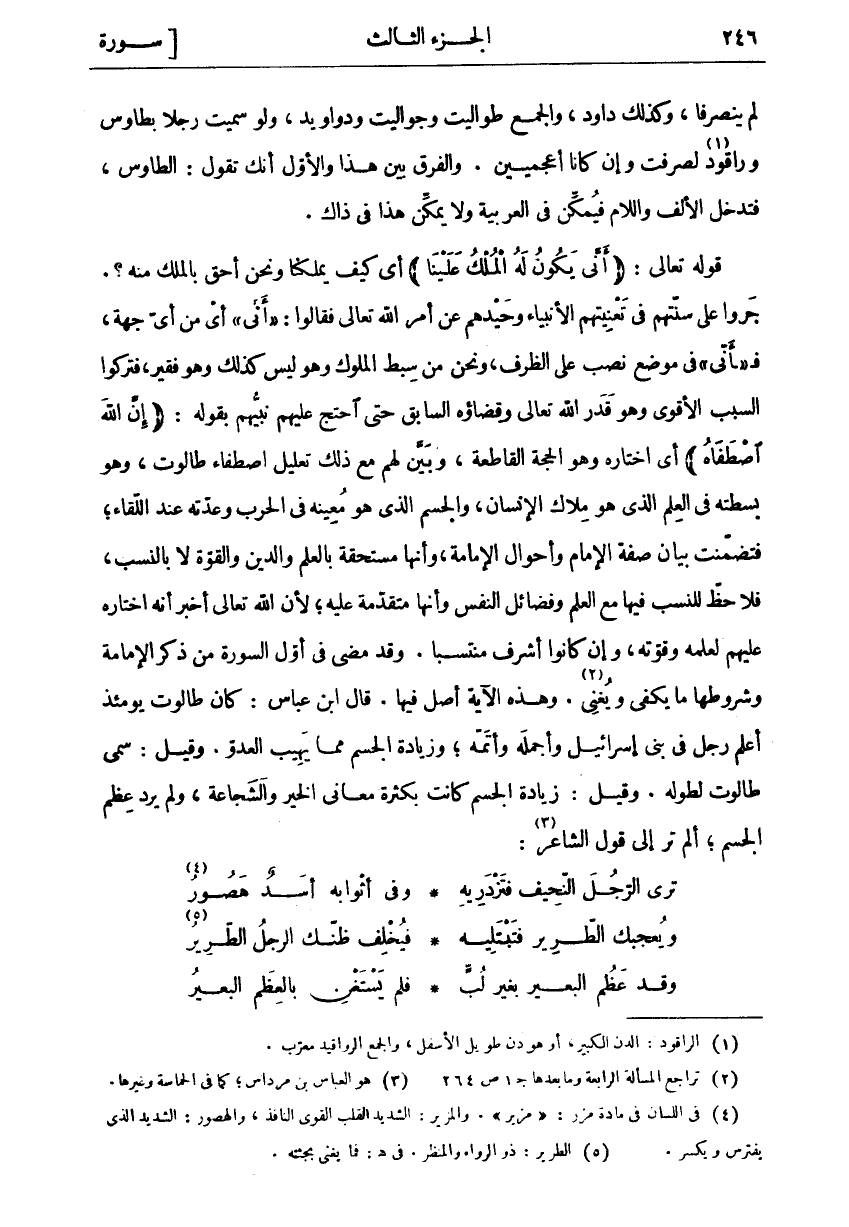 ٢٤٦ الجـــزء الثالث [ ســـورة
لم ينصرفا ، وكذلك داود ، والجمع طواليت وجواليت ودواويد ، ولو سميت رجلا بطاوس
وراقود(١) لصرفت وإن كانا أعجميين . والفرق بين هذا والأوّل أنك تقول : الطاوس ،
فتدخل الألف واللام فيُمكِّن فى العربية ولا يمكِّن هذا فى ذاك .
قوله تعالى : ﴿ أَنَّى يَكُونُ لَهُ الْمُلْكُ عَلَيْنَا ﴾ أى كيف يملكنا ونحن أحق بالملك منه ؟ .
جَروا على سنّتهم فى تَعْنِيتهم الأنبياء وحَيْدهم عن أمر الله تعالى فقالوا : «أَنَّى» أى من أىّ جهة ،
فـ«أَنّى» فى موضع نصب على الظرف ، ونحن من سِبط الملوك وهو ليس كذلك وهو فقير، فتركوا
السبب الأقوى وهو قَدَر الله تعالى وقضاؤه السابق حتى آحتج عليهم نبيُّهم بقوله : ﴿ إِنَّ اللهَ
ٱصْطَفَاهُ ﴾ أى اختاره وهو الحجة القاطعة ، وبَيَّن لهم مع ذلك تعليل اصطفاء طالوت ، وهو
بسطته فى العِلم الذى هو مِلاك الإنسان، والجسم الذى هو مُعِينه فى الحرب وعدّته عند اللّقاء؛
فتضمّنت بيان صفة الإمام وأحوال الإمامة ، وأنها مستحقة بالعلم والدين والقوّة لا بالنسب ،
فلا حظّ للنسب فيها مع العلم وفضائل النفس وأنها متقدّمة عليه ؛ لأن الله تعالى أخبر أنه اختاره
عليهم لعلمه وقوّته ، وإن كانوا أشرف منتسبا . وقد مضى فى أوّل السورة من ذكر الإمامة
وشروطها ما يكفى ويُغنِى(٢) . وهذه الآية أصل فيها . قال ابن عباس : كان طالوت يومئذ
أعلم رجل فى بنى إسرائيل وأجملَه وأتَمّه ؛ وزيادة الجسم مما يَهِيب العدوّ . وقيل : سمى
طالوت لطوله . وقيل : زيادة الجسم كانت بكثرة معانى الخير والشَّجاعة ، ولم يرد عِظم
الجسم ؛ ألم تر إلى قول الشاعر(٣) :
ترى الرّجُلَ النّحيف فتَزْدَرِيهِ * وفى أثوابه أسَدٌ هَصُورُ(٤)
ويُعجبك الطّرير فتَبْتَلِيه * فيُخْلِف ظنّك الرجلُ الطّرِيرُ(٥)
وقد عَظُم البعير بغير لُبٍّ * فلم يَسْتَغْنِ بالعِظَم البعيرُ
(١) الراقود : الدن الكبير، أو هو دن طويل الأسفل ، والجمع الرواقيد معرّب .
(٢) تراجع المسألة الرابعة وما بعدها جـ ١ ص ٢٦٤ (٣) هو العباس بن مرداس؛ كما فى الحماسة وغيرها .
(٤) فى اللسان فى مادة مزر : « مزير » . والمزير : الشديد القلب القوى النافذ ، والهصور : الشديد الذى
يفترس ويكسر . (٥) الطرير : ذو الرواء والمنظر . فى هـ : فما يغنى بجثته .